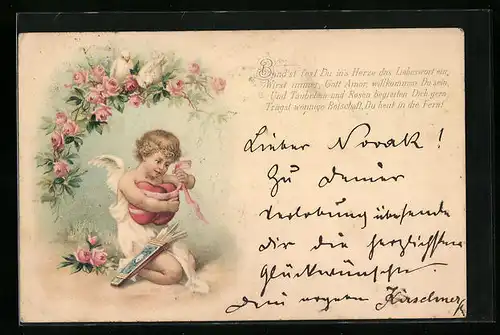 Band'st fest Du ins Herze das Liebeneut ein,
Wirst immer, Gott Amor, willkommen Du sein.
Und Täubchen und Rosen begleiten Dich gern,
Trägst wonnige Botschaft, Du heut in die Fern!
Lieber Novak!
Zu Deiner
Verlobung übersende
dir die herzlichsten
Glückwünsche
Dein Kirschner